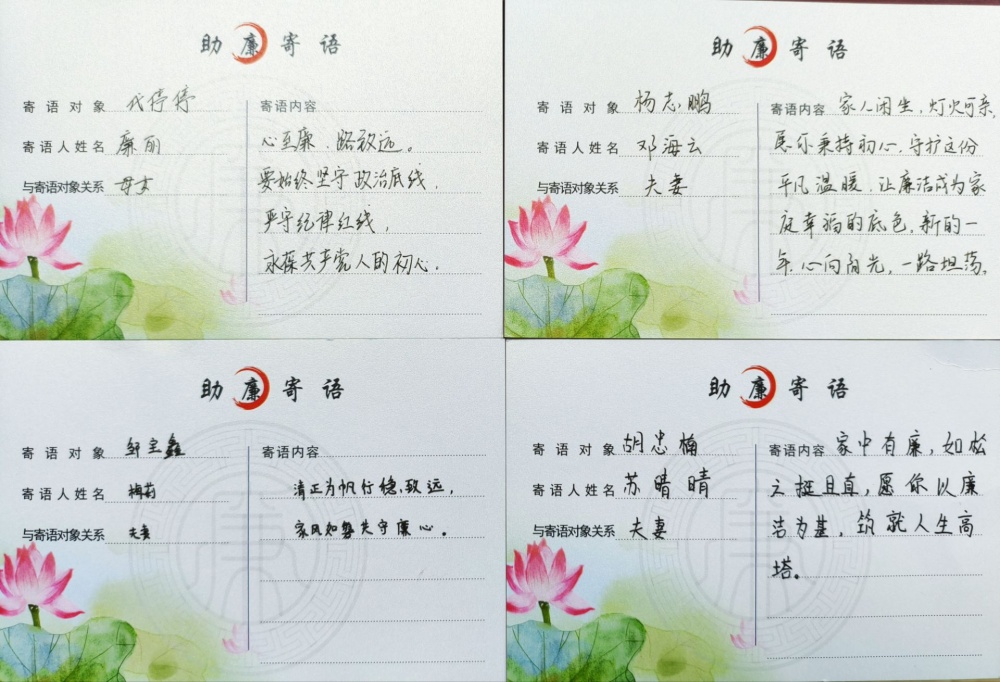 助廉寄语
寄语对象 代停停
寄语人姓名 廉丽
与寄语对象关系 母女
寄语内容
心至廉、路致远。
要始终坚守政治底线，
严守纪律红线，
永葆共产党人的初心。
助廉寄语
寄语对象 杨志鹏
寄语人姓名 邓海云
与寄语对象关系 夫妻
寄语内容 家人闲坐，灯火可亲，
愿你秉持初心，守护这份
平凡温暖，让廉洁成为家
庭幸福的底色，新的一
年，心向阳光，一路坦荡。
助廉寄语
寄语对象 邹宝鑫
寄语人姓名 梅莉
与寄语对象关系 夫妻
寄语内容
清正为帆行稳，致远，
家风如磐共守廉心。
助廉寄语
寄语对象 胡忠楠
寄语人姓名 苏晴晴
与寄语对象关系 夫妻
寄语内容 家中有廉，如松
之挺且直，愿你以廉
洁为基，筑就人生高
塔。